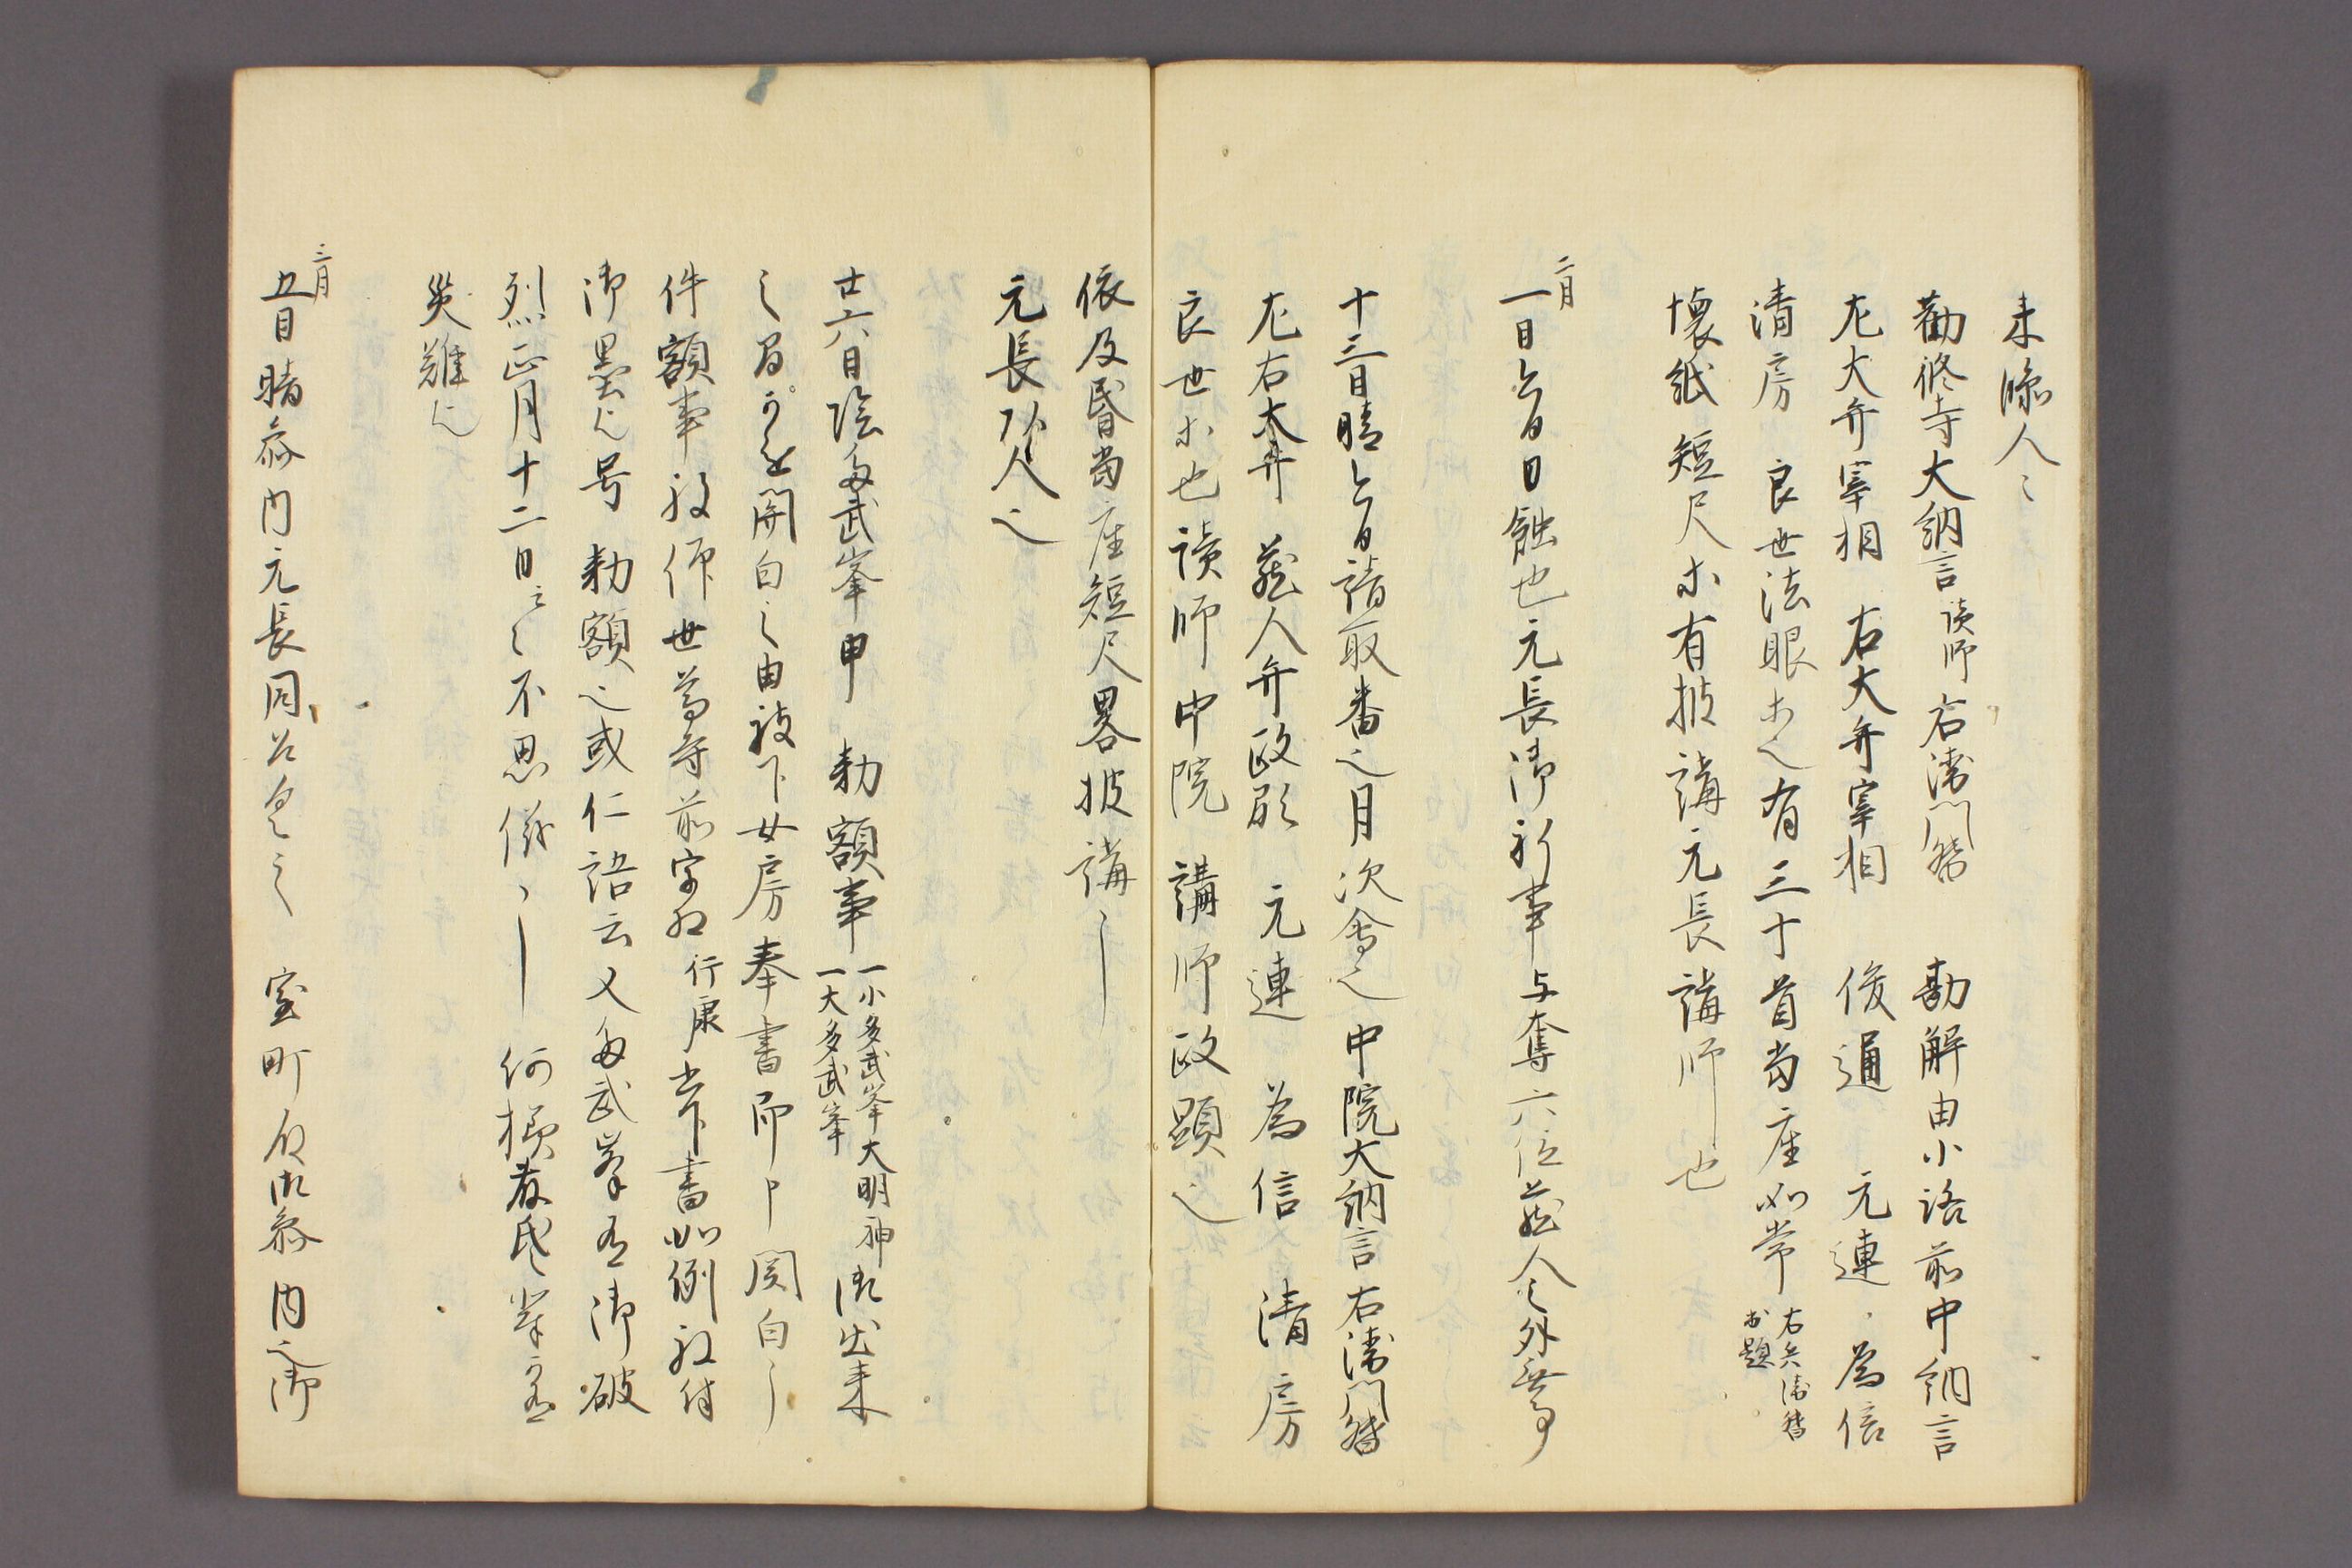 来臨人々
勧修寺大納言 読師 右衛門督 勘解由小路前中納言
左大弁宰相 右大弁宰相 俊通 元連 為信
清房 良世法眼等也有三十首当座如常 右兵衛督出題
懐紙短尺等有披講元長講師也
二月
一日今日日蝕也元長御祈事与奪六位蔵人之外無事
十三日晴今日諸取番之月次會也中院大納言右衛門督
左右大弁 蔵人弁政顕 元連 為信 清房
良世等也読師中院 講師政顕也
依及昏当座短尺畧披講々
元長 人也
廿六日陰多武峯申 勅額事 一小多武峯大明神 一大多武峯 出来
之間 関白之由被下女房奉書 関白
件額事被仰世尊寺前宰相 行康 書如例被付
御墨也号 勅額也或仁語云又多武峯有御破
烈正月十二日云々不思儀々 何様 氏
災難也
三月
五日晴参内元長同 之 室町 参内也御